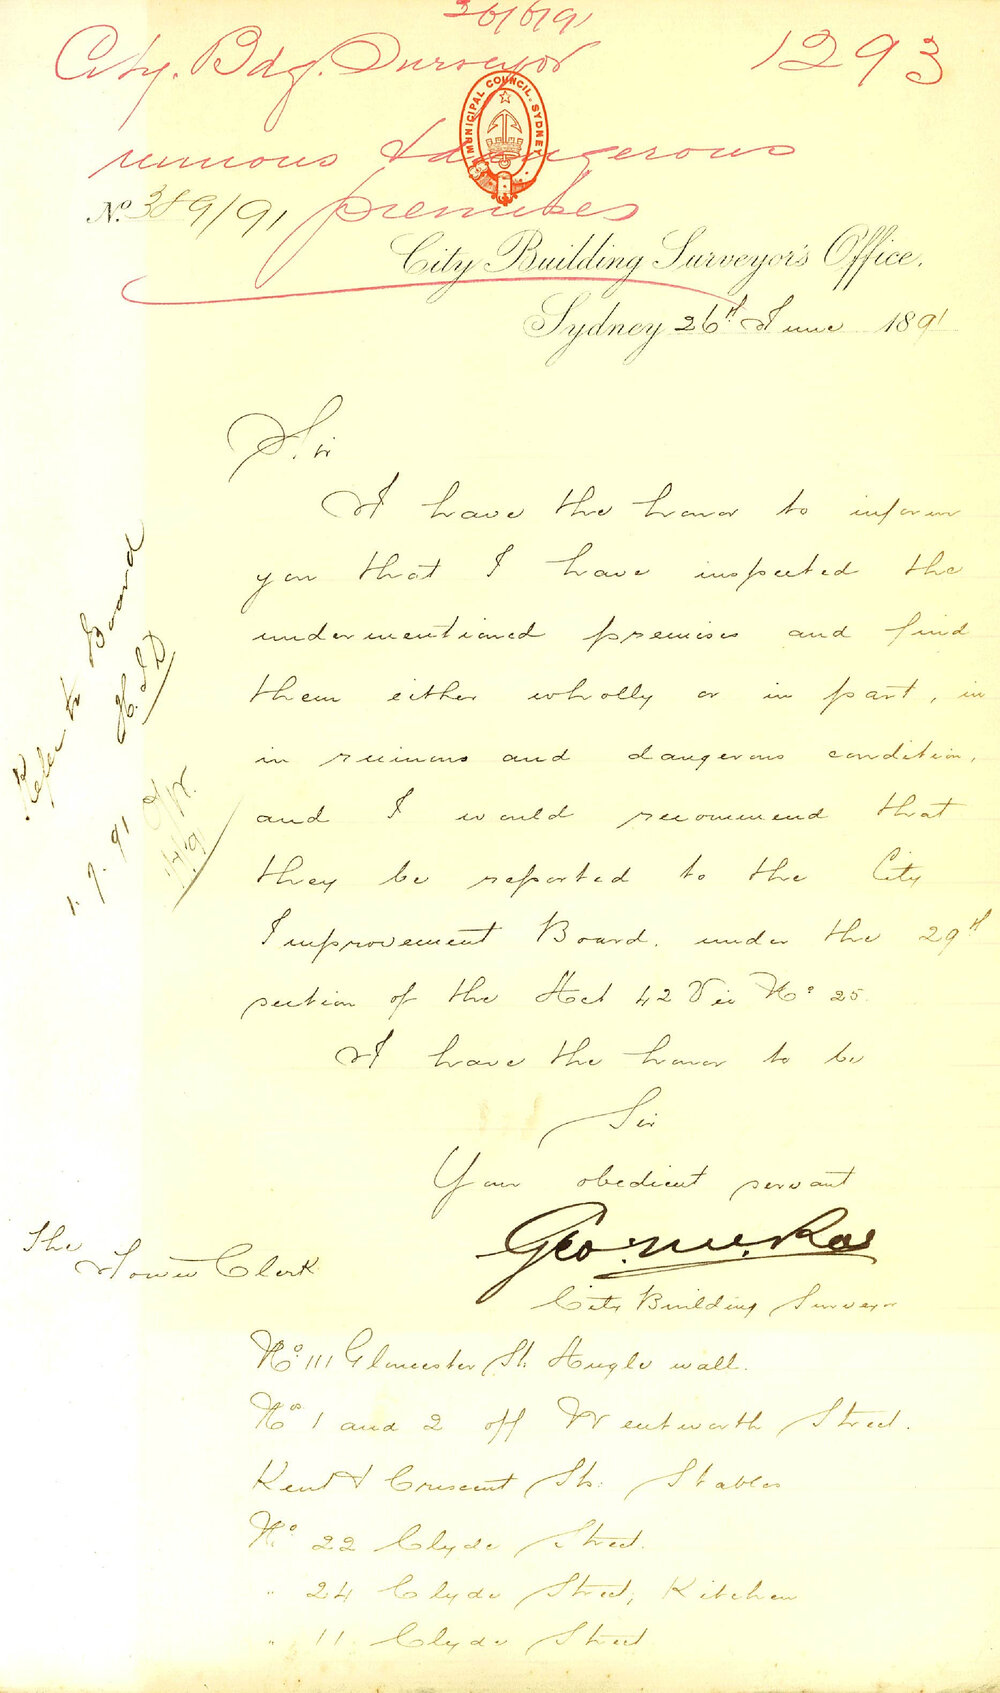 26/6/91
City. Bdg. Surveyor
1293
MUNICIPAL COUNCIL. SYDNEY
ruinous & dangerous
premises
No. 389/91
City Building Surveyor's Office.
Sydney 26th June 1891
Sir
I have the honor to inform
you that I have inspected the
undermentioned premises and find
them either wholly or in part, in
in ruinous and dangerous condition,
and I would recommend that
they be reported to the City
Improvement Board. under the 29th
section of the Act 42 Vic No 25.
I have the honor to be
Sir
Your obedient servant
Geo. McRae
City Building Surveyor
The
Town Clerk
Refer to Board
1.7.91
No 111 Gloucester St. Angle wall.
Nos 1 and 2 off Wentworth Street.
Kent & Crescent Sts. Stables
No 22 Clyde Street.
" 24 Clyde Street, Kitchen
" 11 Clyde Street